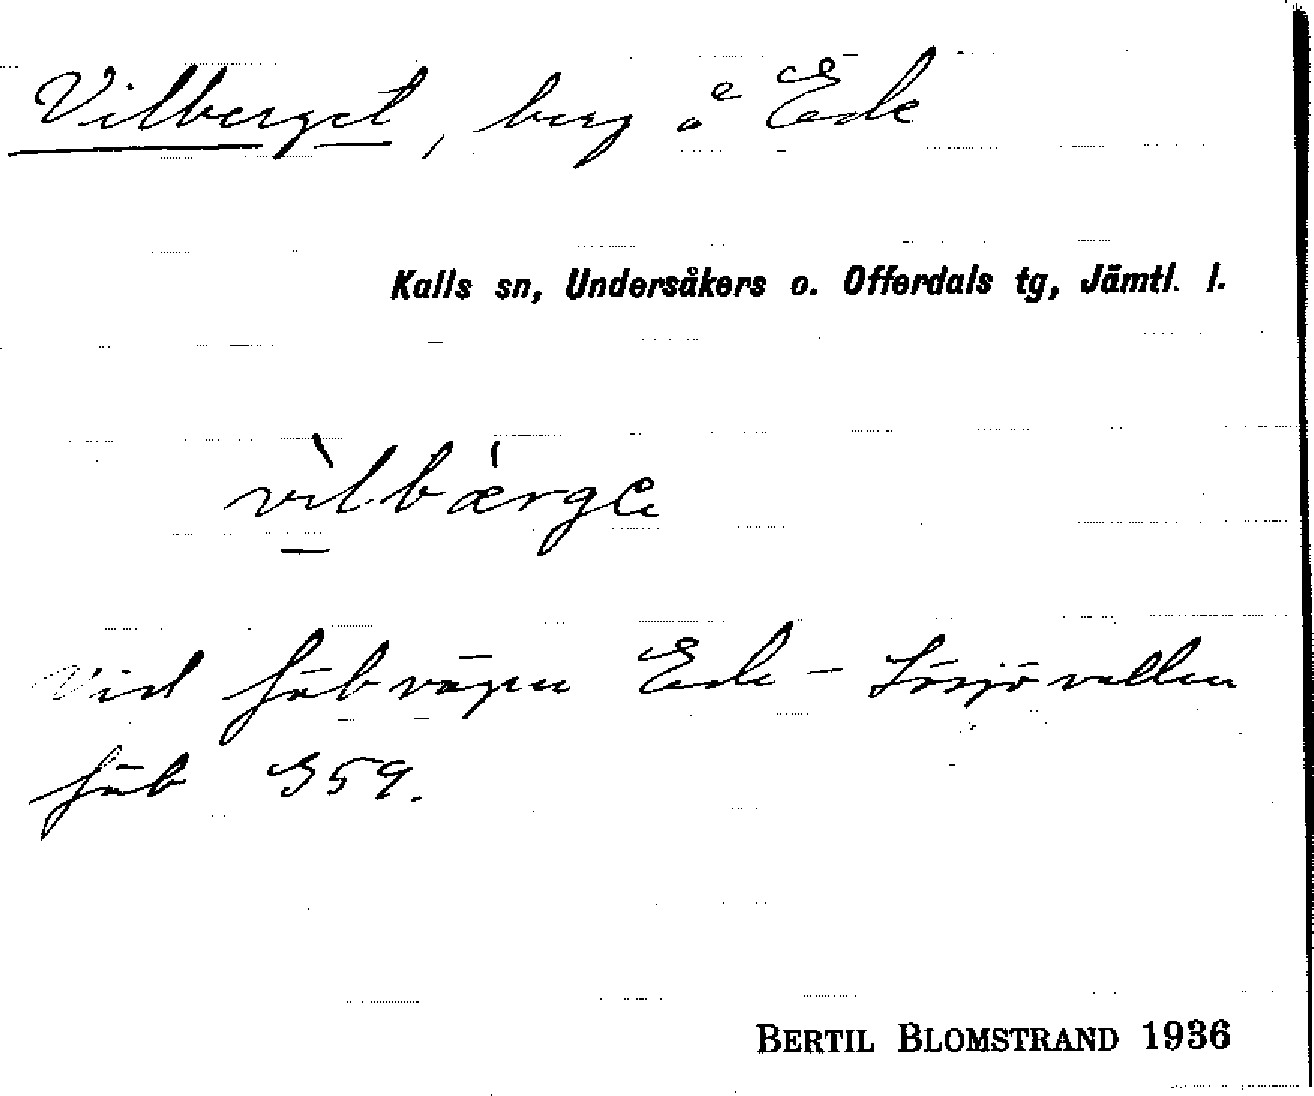 Vilberget, berg å Ede
Kalls sn, Undersåkers o. Offerdals tg, Jämtl. l.
vìlbærge
Vid fäbvägen Ede – Lösjövallen
fäb 359.
BERTIL BLOMSTRAND 1936